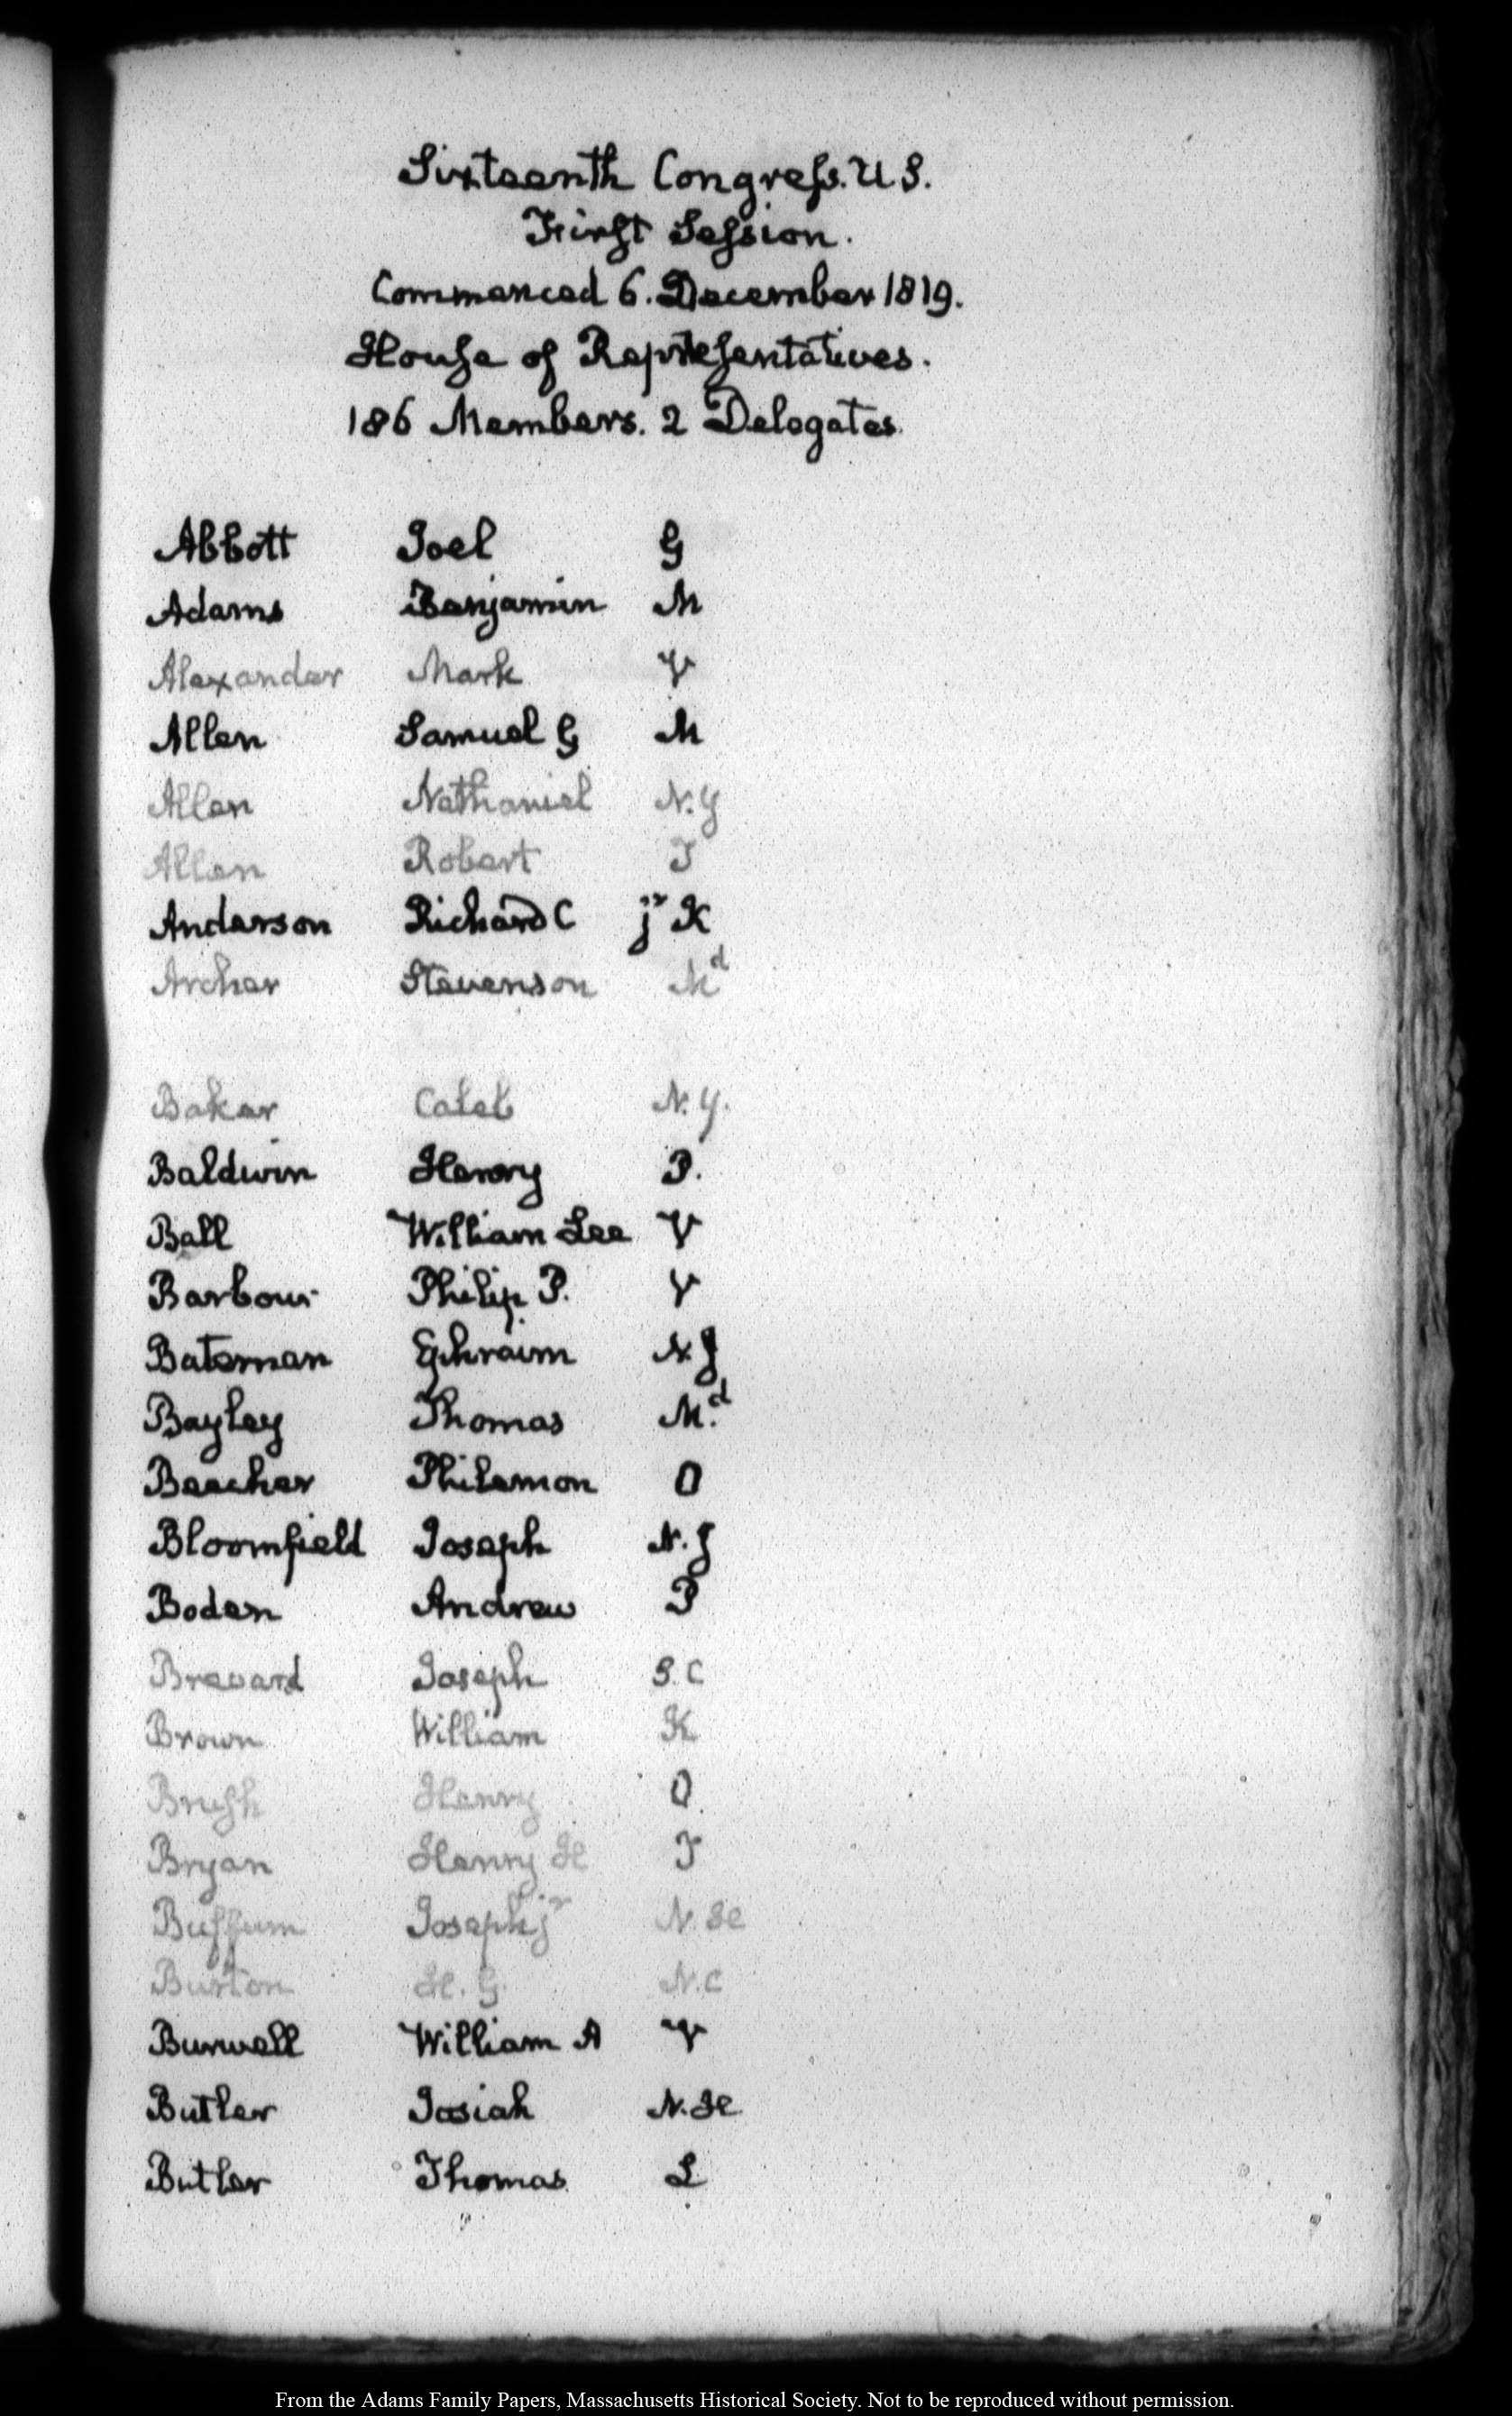 Sixteenth Congress. U.S.
First Session.
Commenced 6. December 1819.
House of Representatives.
186 Members. 2 Delegates.
Abbott Joel G
Adams Benjamin M
Alexander Mark V
Allen Samuel G M
Allen Nathaniel N.Y
Allen Robert T
Anderson Richard C jr K
Archer Stevenson Md
Baker Caleb N.Y.
Baldwin Henry P.
Ball William Lee V
Barbour Philip P. V
Bateman Ephraim N.J
Bayley Thomas M.d
Beecher Philemon O
Bloomfield Joseph N.J
Boden Andrew P
Brevard Joseph S.C
Brown William K
Brush Henry O.
Bryan Henry H T
Buffum Joseph jr N.H
Burton H.G. N.C
Burwell William A V
Butler Josiah N.H
Butler Thomas L
From the Adams Family Papers, Massachusetts Historical Society. Not to be reproduced without permission.